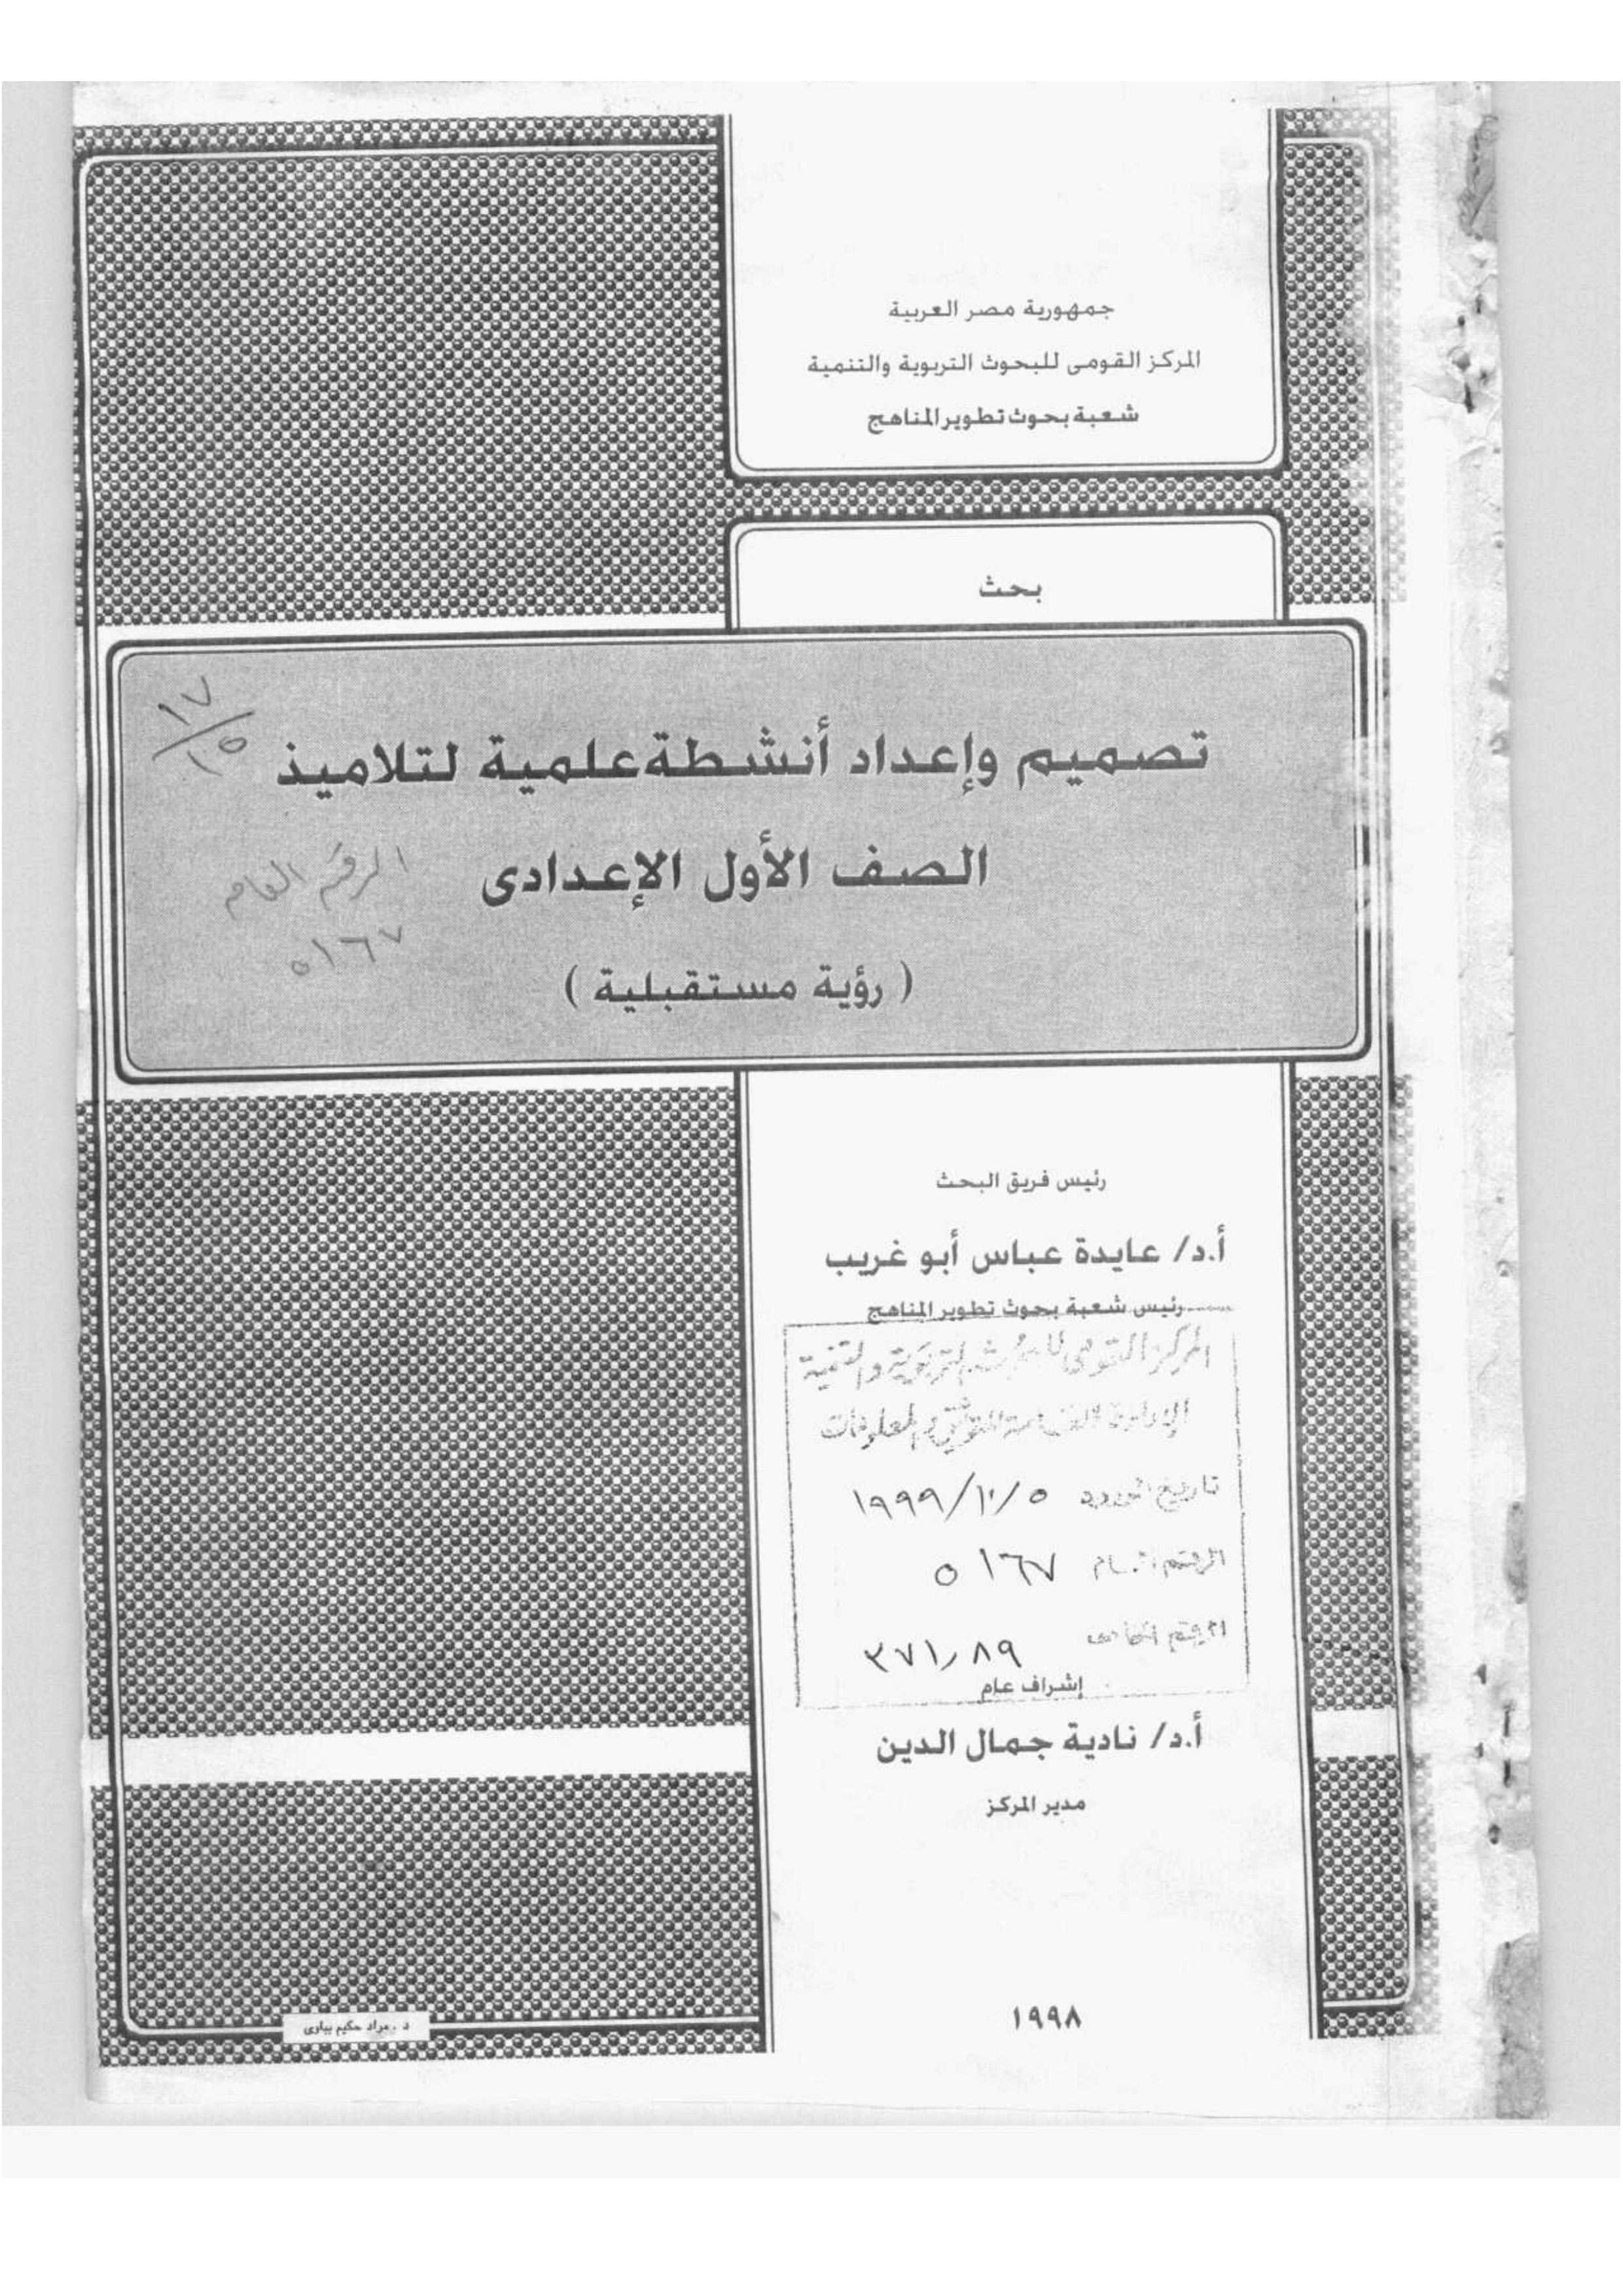 جمهورية مصر العربية
المركز القومى للبحوث التربوية والتنمية
شعبة بحوث تطوير المناهج
بحث
١٧
١٥
تصميم وإعداد أنشطة علمية لتلاميذ
الصف الأول الإعدادى
الرقم العام
٥١٦٧
( رؤية مستقبلية )
رئيس فريق البحث
أ.د/ عايدة عباس أبو غريب
رئيس شعبة بحوث تطوير المناهج
المركز القومى للبحوث التربوية والتنمية
الإدارة العامة للتوثيق والمعلومات
تاريخ ١٩٩٩/١٠/٥
الرقم العام ٥١٦٧
الرقم الخاص ٣٧١٫٨٩
إشراف عام
أ.د/ نادية جمال الدين
مدير المركز
١٩٩٨
د . مراد حكيم بباوى